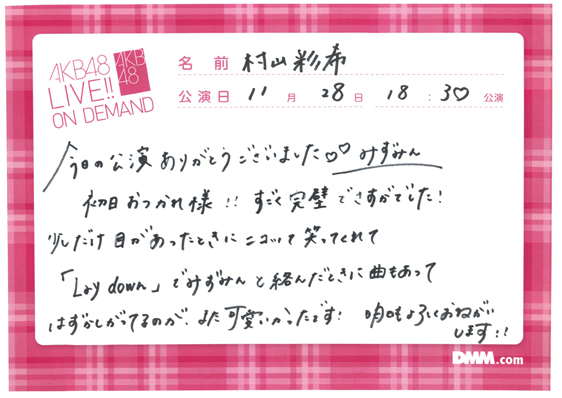 AKB48
LIVE!!
ON DEMAND
AKB
48
名前 村山彩希
公演日 11月28日 18:30公演
今日の公演ありがとうございました♡♡ みずみん
初日おつかれ様!! すごく完璧でさすがでした!
少しだけ目があったときにニコッて笑ってくれて
「Lay down」でみずみんと絡んだときに曲もあって
はずかしがってるのが、また可愛いかったです! 明日もよろしくおねがい
します!!
DMM.com